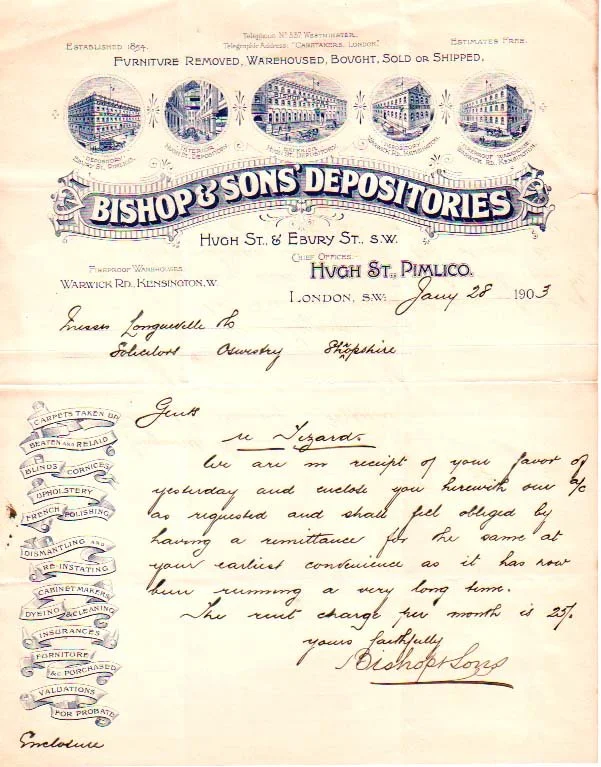 Telephone No 557 Westminster.
Established 1854. Telegraphic Address: "Caretakers, London." Estimates Free.
Furniture Removed, Warehoused, Bought, Sold or Shipped.
Depository Ebury St., Pimlico.
Interior Hugh St., Depository.
Exterior Hugh St., Depository.
Depository Warwick Rd., Kensington.
Fireproof Warehouse Warwick Rd., Kensington.
BISHOP & SONS' DEPOSITORIES
Hugh St., & Ebury St., S.W.
Fireproof Warehouses Chief Offices:-
Warwick Rd., Kensington, W. Hugh St., Pimlico.
London, S.W. Jany 28 1903
Messrs Longueville & Co
Solicitors Oswestry Shropshire
Gents
re Tizard.
We are in receipt of your favor of
yesterday and enclose you herewith our a/c
as requested and shall feel obliged by
having a remittance for the same at
your earliest convenience as it has now
been running a very long time.
The rent charge per month is 25/.
yours faithfully
Bishop & Sons
CARPETS TAKEN UP
BEATEN AND RELAID
BLINDS CORNICES
UPHOLSTERY
FRENCH POLISHING
DISMANTLING AND
RE-INSTATING
CABINET MAKERS
DYEING & CLEANING
INSURANCES
FURNITURE
&c PURCHASED
VALUATIONS
FOR PROBATE
Enclosure